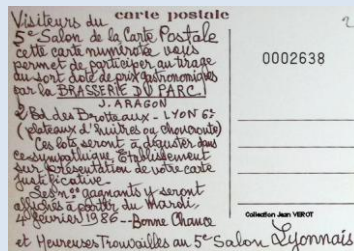 carte postale
Visiteurs du
5e Salon de la Carte Postale
cette carte numérotée vous
permet de participer au tirage
au sort doté de prix gastronomiques
par la BRASSERIE DU PARC.
J. ARAGON
2 Bd. des Brotteaux - LYON 6e
(plateaux d'huîtres ou choucroute)
Ces lots seront à déguster dans
ce sympathique Etablissement
sur présentation de votre carte
justificative.
Les nos gagnants y seront
affichés à partir du Mardi,
4 février 1986 -- Bonne Chance
et Heureuses Trouvailles au 5e Salon Lyonnais
0002638
Collection Jean VEROT